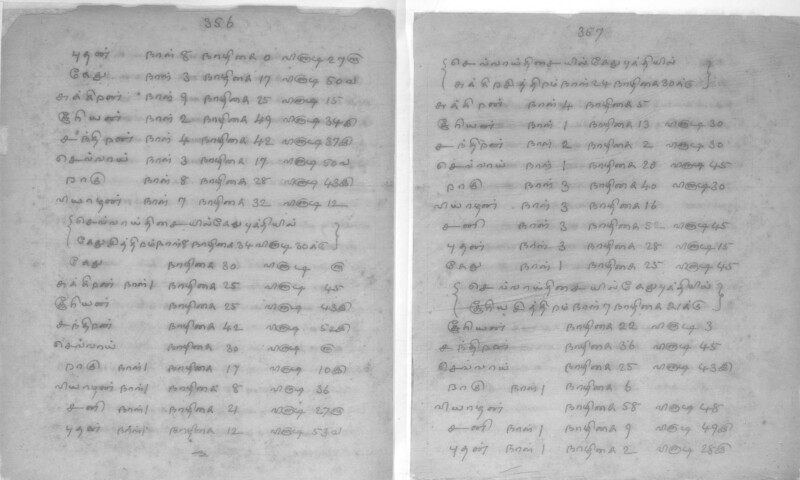 356
புதன் நாள் 8 நாழிகை 0 விகடி 27
கேது நாள் 3 நாழிகை 17 விகடி 50
சுக்கிரன் நாள் 9 நாழிகை 25 விகடி 15
நாள் 2 நாழிகை 49 விகடி 34
சந்திரன் நாள் 4 நாழிகை 42 விகடி 37
செவ்வாய் நாள் 3 நாழிகை 17 விகடி 50
ராகு நாள் 8 நாழிகை 28 விகடி 43
வியாழன் நாள் 7 நாழிகை 32 விகடி 12
செவ்வாய்திசையில் கேதுபுத்தியில்
கேது நாள் 8 நாழிகை 34 விகடி 30க்கு
கேது நாழிகை 30 விகடி
சுக்கிரன் நாள் 1 நாழிகை 25 விகடி 45
நாழிகை 25 விகடி 43
சந்திரன் நாழிகை 42 விகடி 52
செவ்வாய் நாழிகை 30 விகடி
ராகு நாள் 1 நாழிகை 17 விகடி 10
வியாழன் நாள் 1 நாழிகை 8 விகடி 36
சனி நாள் 1 நாழிகை 21 விகடி 27
புதன் நாள் 1 நாழிகை 12 விகடி 53
357
செவ்வாய்திசையில் கேதுபுத்தியில்
நாள் 24 நாழிகை 30க்கு
சுக்கிரன் நாள் 4 நாழிகை 5
நாள் 1 நாழிகை 13 விகடி 30
சந்திரன் நாள் 2 நாழிகை 2 விகடி 30
செவ்வாய் நாள் 1 நாழிகை 25 விகடி 45
ராகு நாள் 3 நாழிகை 40 விகடி 30
வியாழன் நாள் 3 நாழிகை 16
சனி நாள் 3 நாழிகை 5 விகடி 45
புதன் நாள் 3 நாழிகை 28 விகடி 15
கேது நாள் 1 நாழிகை 25 விகடி 45
செவ்வாய்திசையில் கேதுபுத்தியில்
நாள் 7 நாழிகை
நாழிகை 22 விகடி 3
சந்திரன் நாழிகை 36 விகடி 45
செவ்வாய் நாழிகை 25 விகடி 43
ராகு நாள் 1 நாழிகை 6
வியாழன் நாழிகை 58 விகடி 48
சனி நாள் 1 நாழிகை 9 விகடி 49
புதன் நாள் 1 நாழிகை 2 விகடி 28